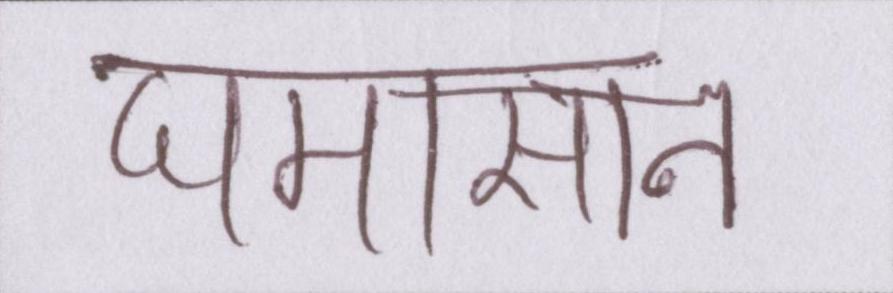 घमासान